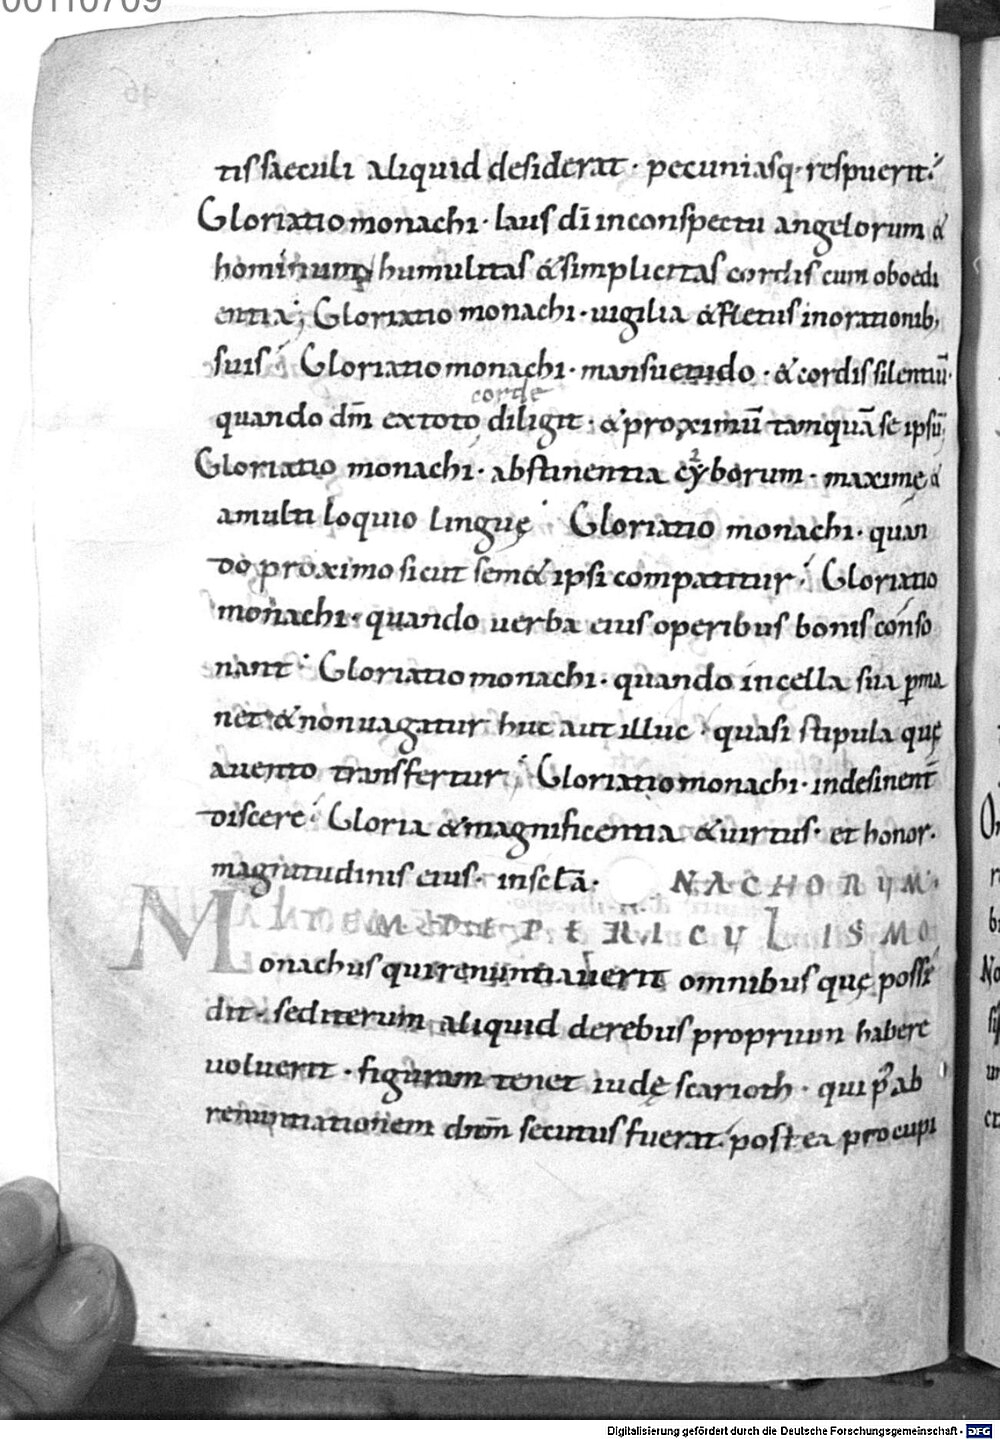 00110709
tis saeculi aliquid desiderat · pecuniasq· respuerit ;
Gloriatio monachi · laus dī in conspectu angelorum &
hominum humilitas & simplicitas cordis cum oboedi
entia ; Gloriatio monachi · uigilia & fletus in orationib;
suis Gloriatio monachi · mansuetudo · & cordis silentiū ·
corde
quando dm̄ ex toto diligit · & proximū tanquā se ipsū
Gloriatio monachi · abstinentia cyborum · maxime &
a multi loquio linguę Gloriatio monachi · quan
do proximo sicut sem& ipsi compatitur Gloriatio
monachi · quando uerba eius operibus bonis conso
nant Gloriatio monachi · quando in cella sua pma
net & non uagatur huc aut illuc · quasi stipula quę
a uento transfertur Gloriatio monachi · indesinent̄
discere Gloria & magnificentia & uirtus · et honor ·
magnitudinis eius · in sclā · NACHORUM ·
PERICULIS MO
Monachus qui renuntiauerit omnibus quę possi
dit · sed iterum aliquid de rebus proprium habere
uoluerit · figuram tenet iudę scarioth · qui p ab
renuntiationem dnm̄ secutus fuerat postea pro cupi
Digitalisierung gefördert durch die Deutsche Forschungsgemeinschaft - DFG